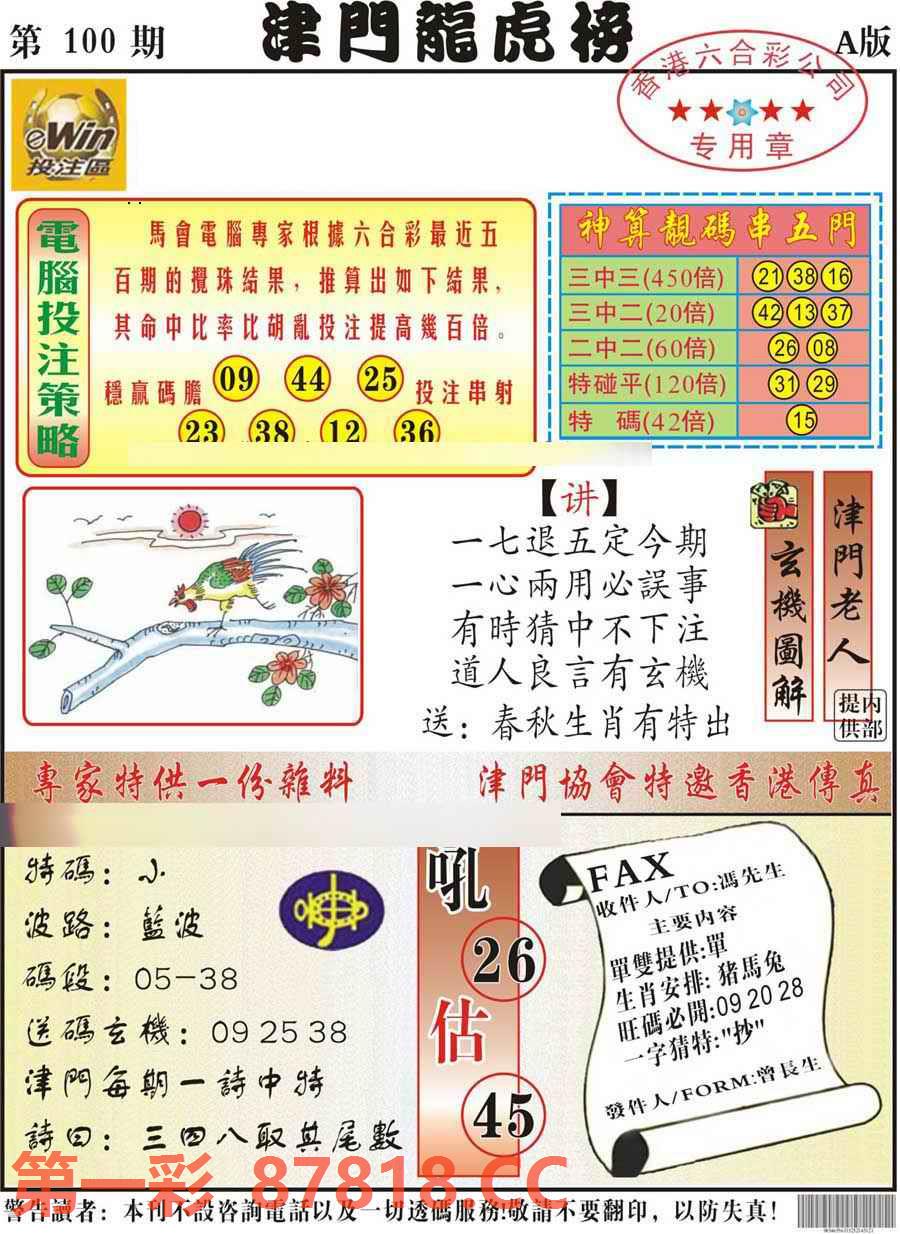 第 100 期
津門龍虎榜
A版
香港六合彩公司
专用章
eWin
投注區
電腦投注策略
馬會電腦專家根據六合彩最近五
百期的攪珠結果，推算出如下結果，
其命中比率比胡亂投注提高幾百倍。
穩贏碼膽 09 44 25 投注串射
23 38 12 36
神算靚碼串五門
三中三(450倍) 21 38 16
三中二(20倍) 42 13 37
二中二(60倍) 26 08
特碰平(120倍) 31 29
特 碼(42倍) 15
【讲】
一七退五定今期
一心兩用必誤事
有時猜中不下注
道人良言有玄機
送：春秋生肖有特出
玄機圖解
津門老人
内部提供
專家特供一份雜料
津門協會特邀香港傳真
特碼：小
波路：藍波
碼段：05-38
送碼玄機：09 25 38
津門每期一詩中特
詩曰：三四八取其尾數
吼
26
估
45
FAX
收件人/TO:馮先生
主要内容
單雙提供:單
生肖安排:豬馬兔
旺碼必開:09 20 28
一字猜特:"抄"
發件人/FORM:曾長生
第一彩 87818.CC
警告讀者：本刊不設咨詢電話以及一切透碼服務!敬請不要翻印，以防失真!